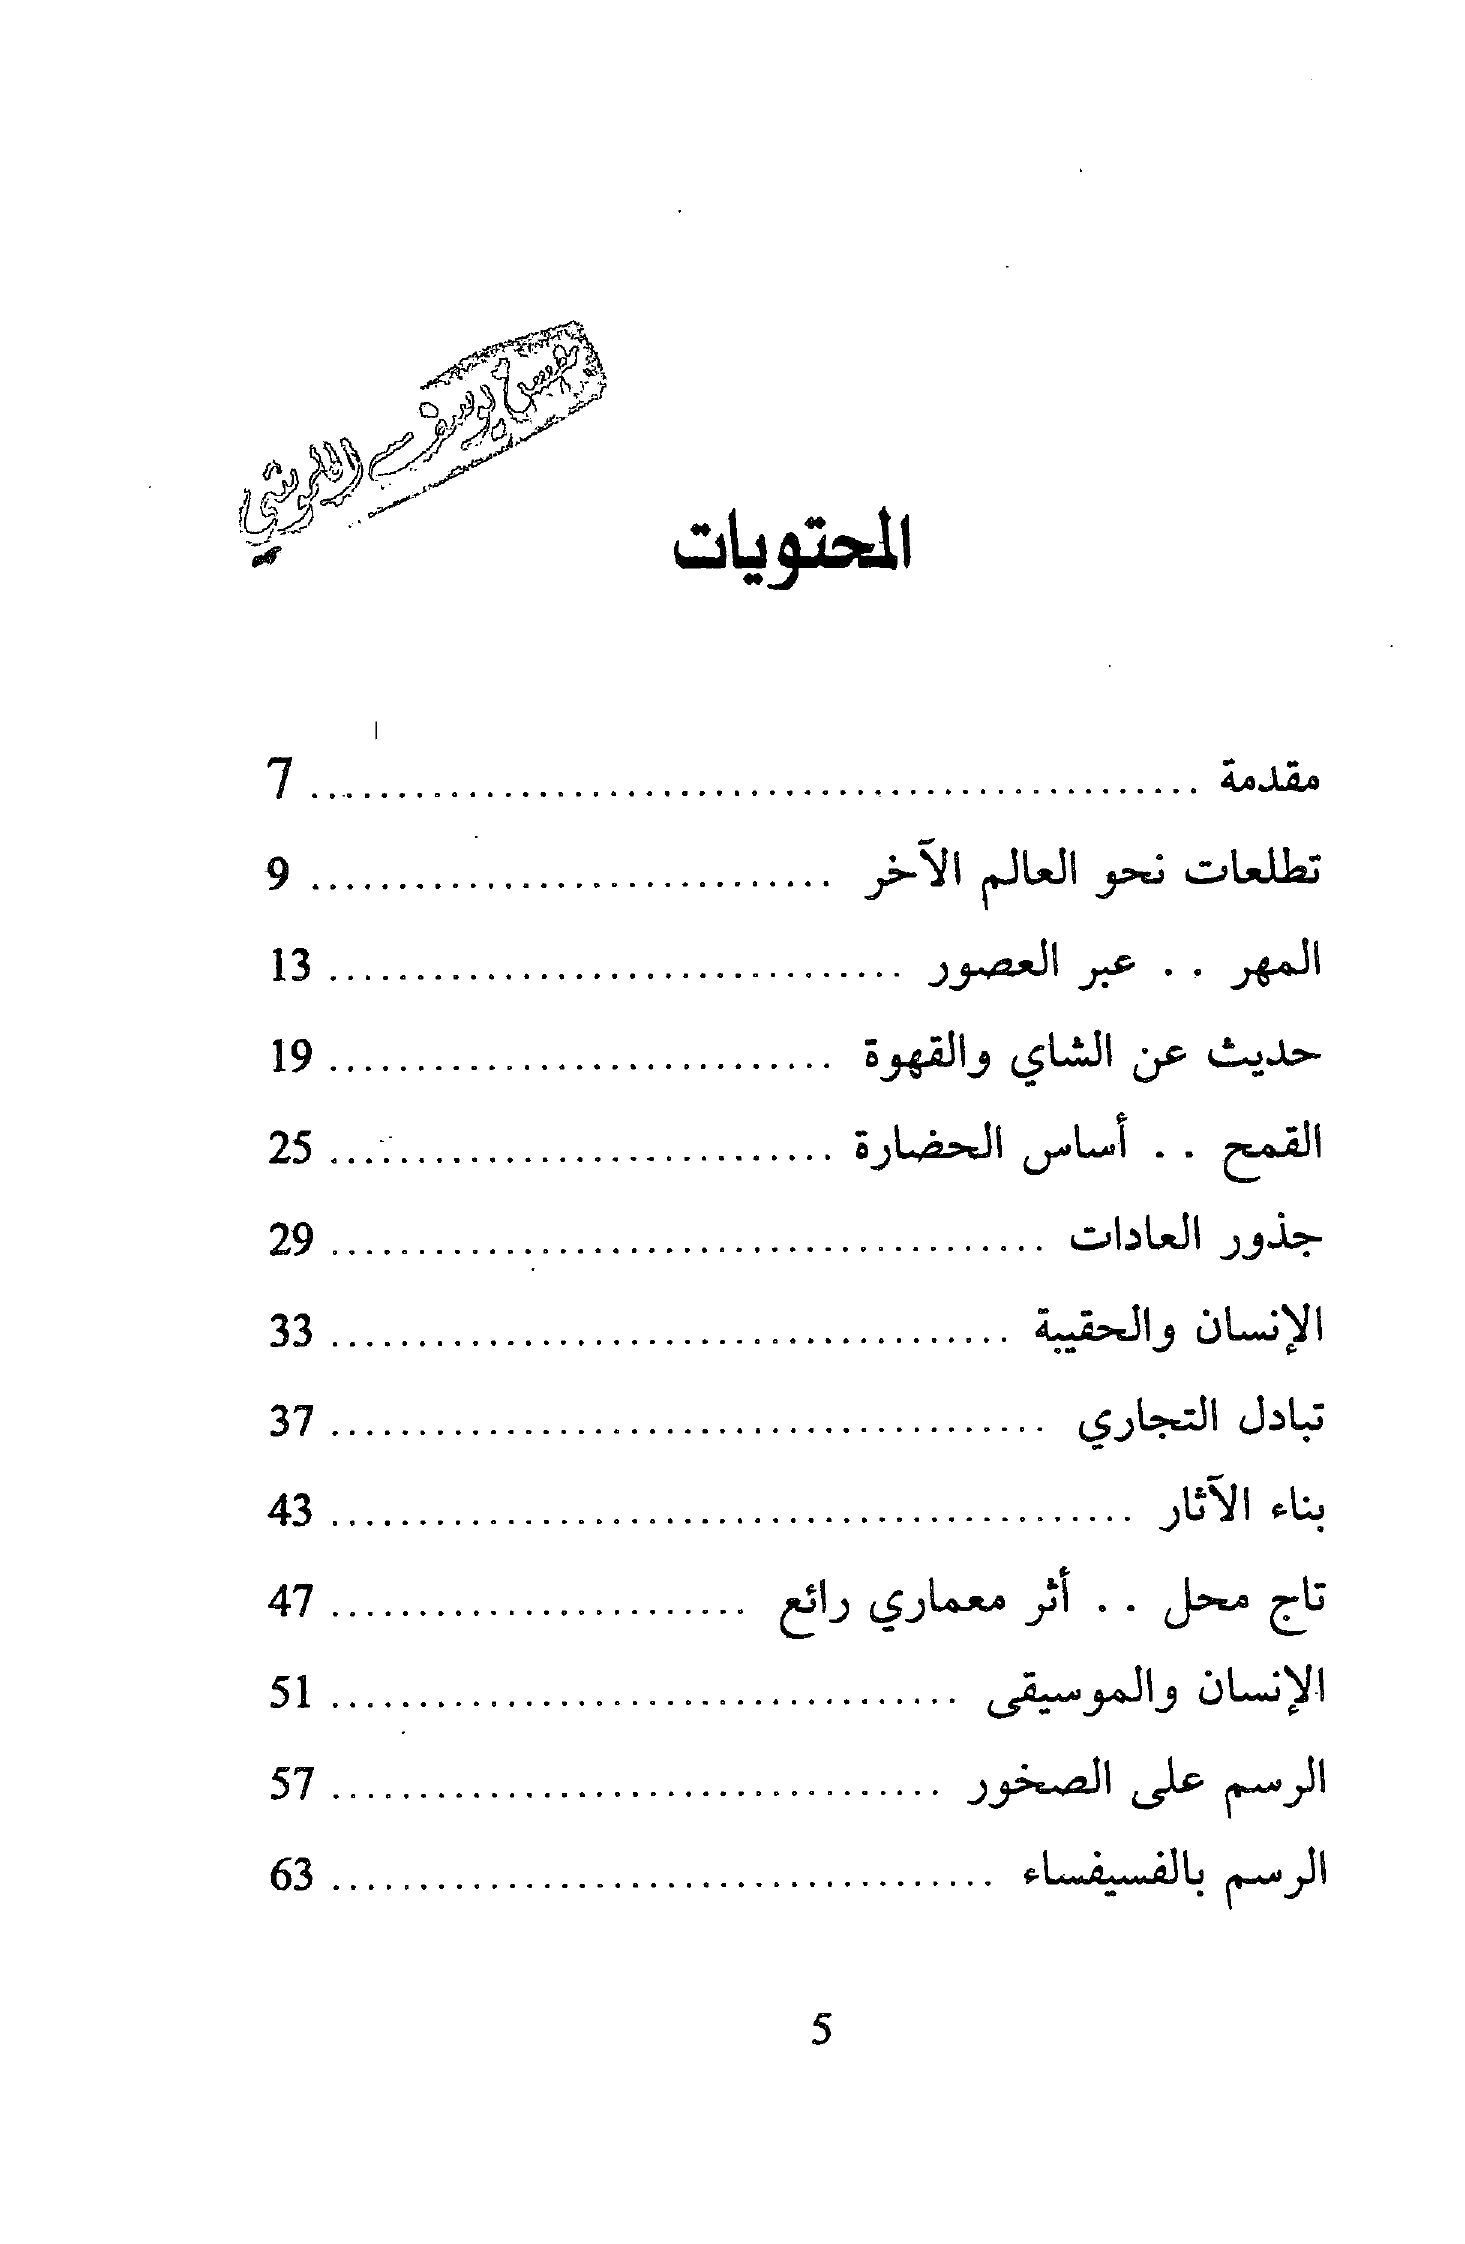 يوسف
المحتويات
مقدمة ................................................... 7
تطلعات نحو العالم الآخر .............................. 9
المهر . . عبر العصور ................................. 13
حديث عن الشاي والقهوة ............................. 19
القمح . . أساس الحضارة ............................. 25
جذور العادات ......................................... 29
الإنسان والحقيبة ....................................... 33
تبادل التجاري ......................................... 37
بناء الآثار .............................................. 43
تاج محل . . أثر معماري رائع ........................ 47
الإنسان والموسيقى .................................... 51
الرسم على الصخور ................................... 57
الرسم بالفسيفساء ...................................... 63
5